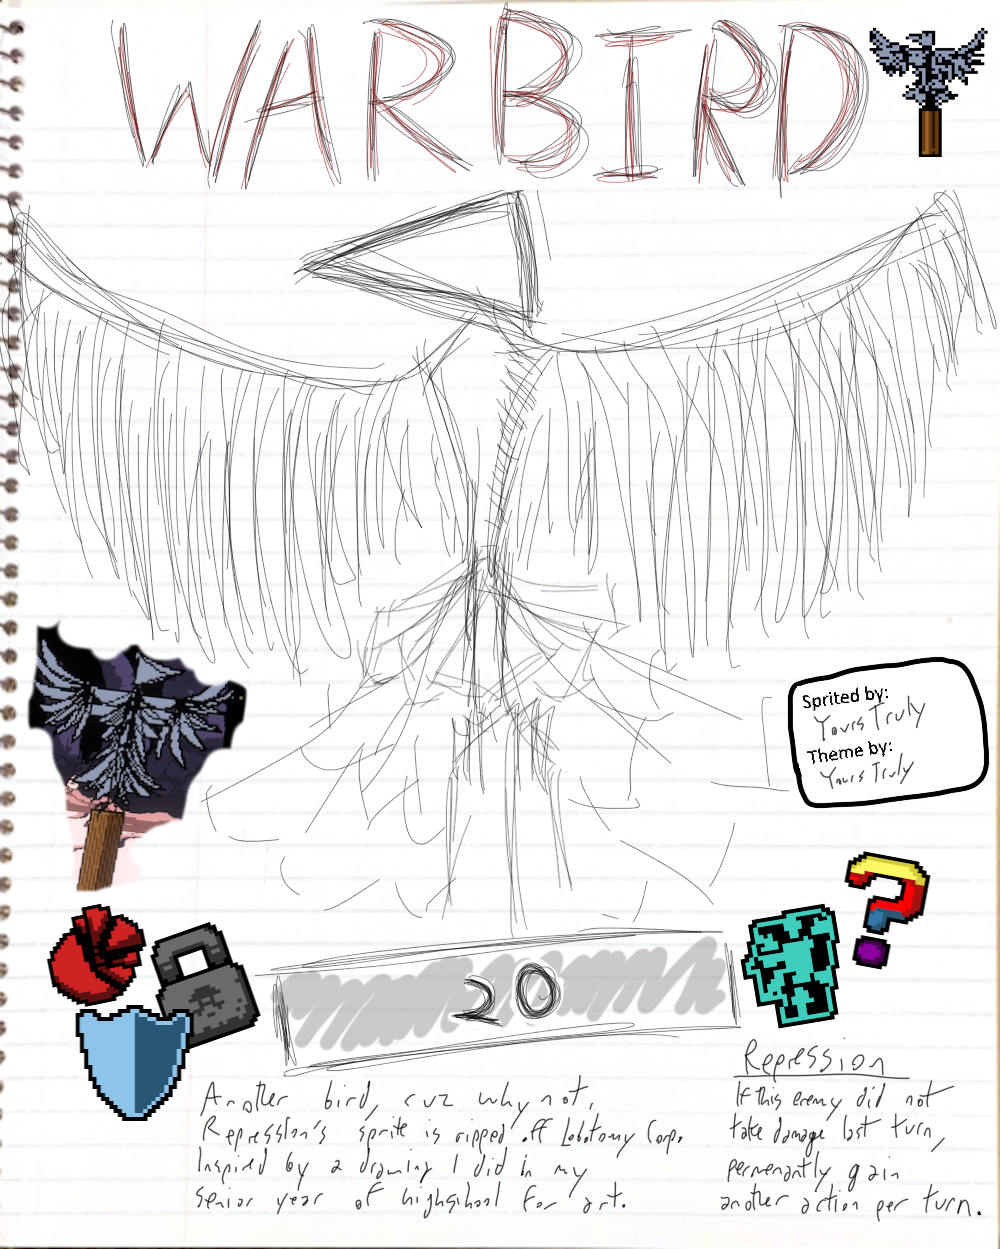 WARBIRD
Sprited by:
Yours Truly
Theme by:
Yours Truly
?
20
Another bird, cuz why not.
Repression's sprite is ripped off Lobotomy Corp.
Inspired by a drawing I did in my
senior year of highschool for art.
Repression
If this enemy did not
take damage last turn,
permenantly gain
another action per turn.